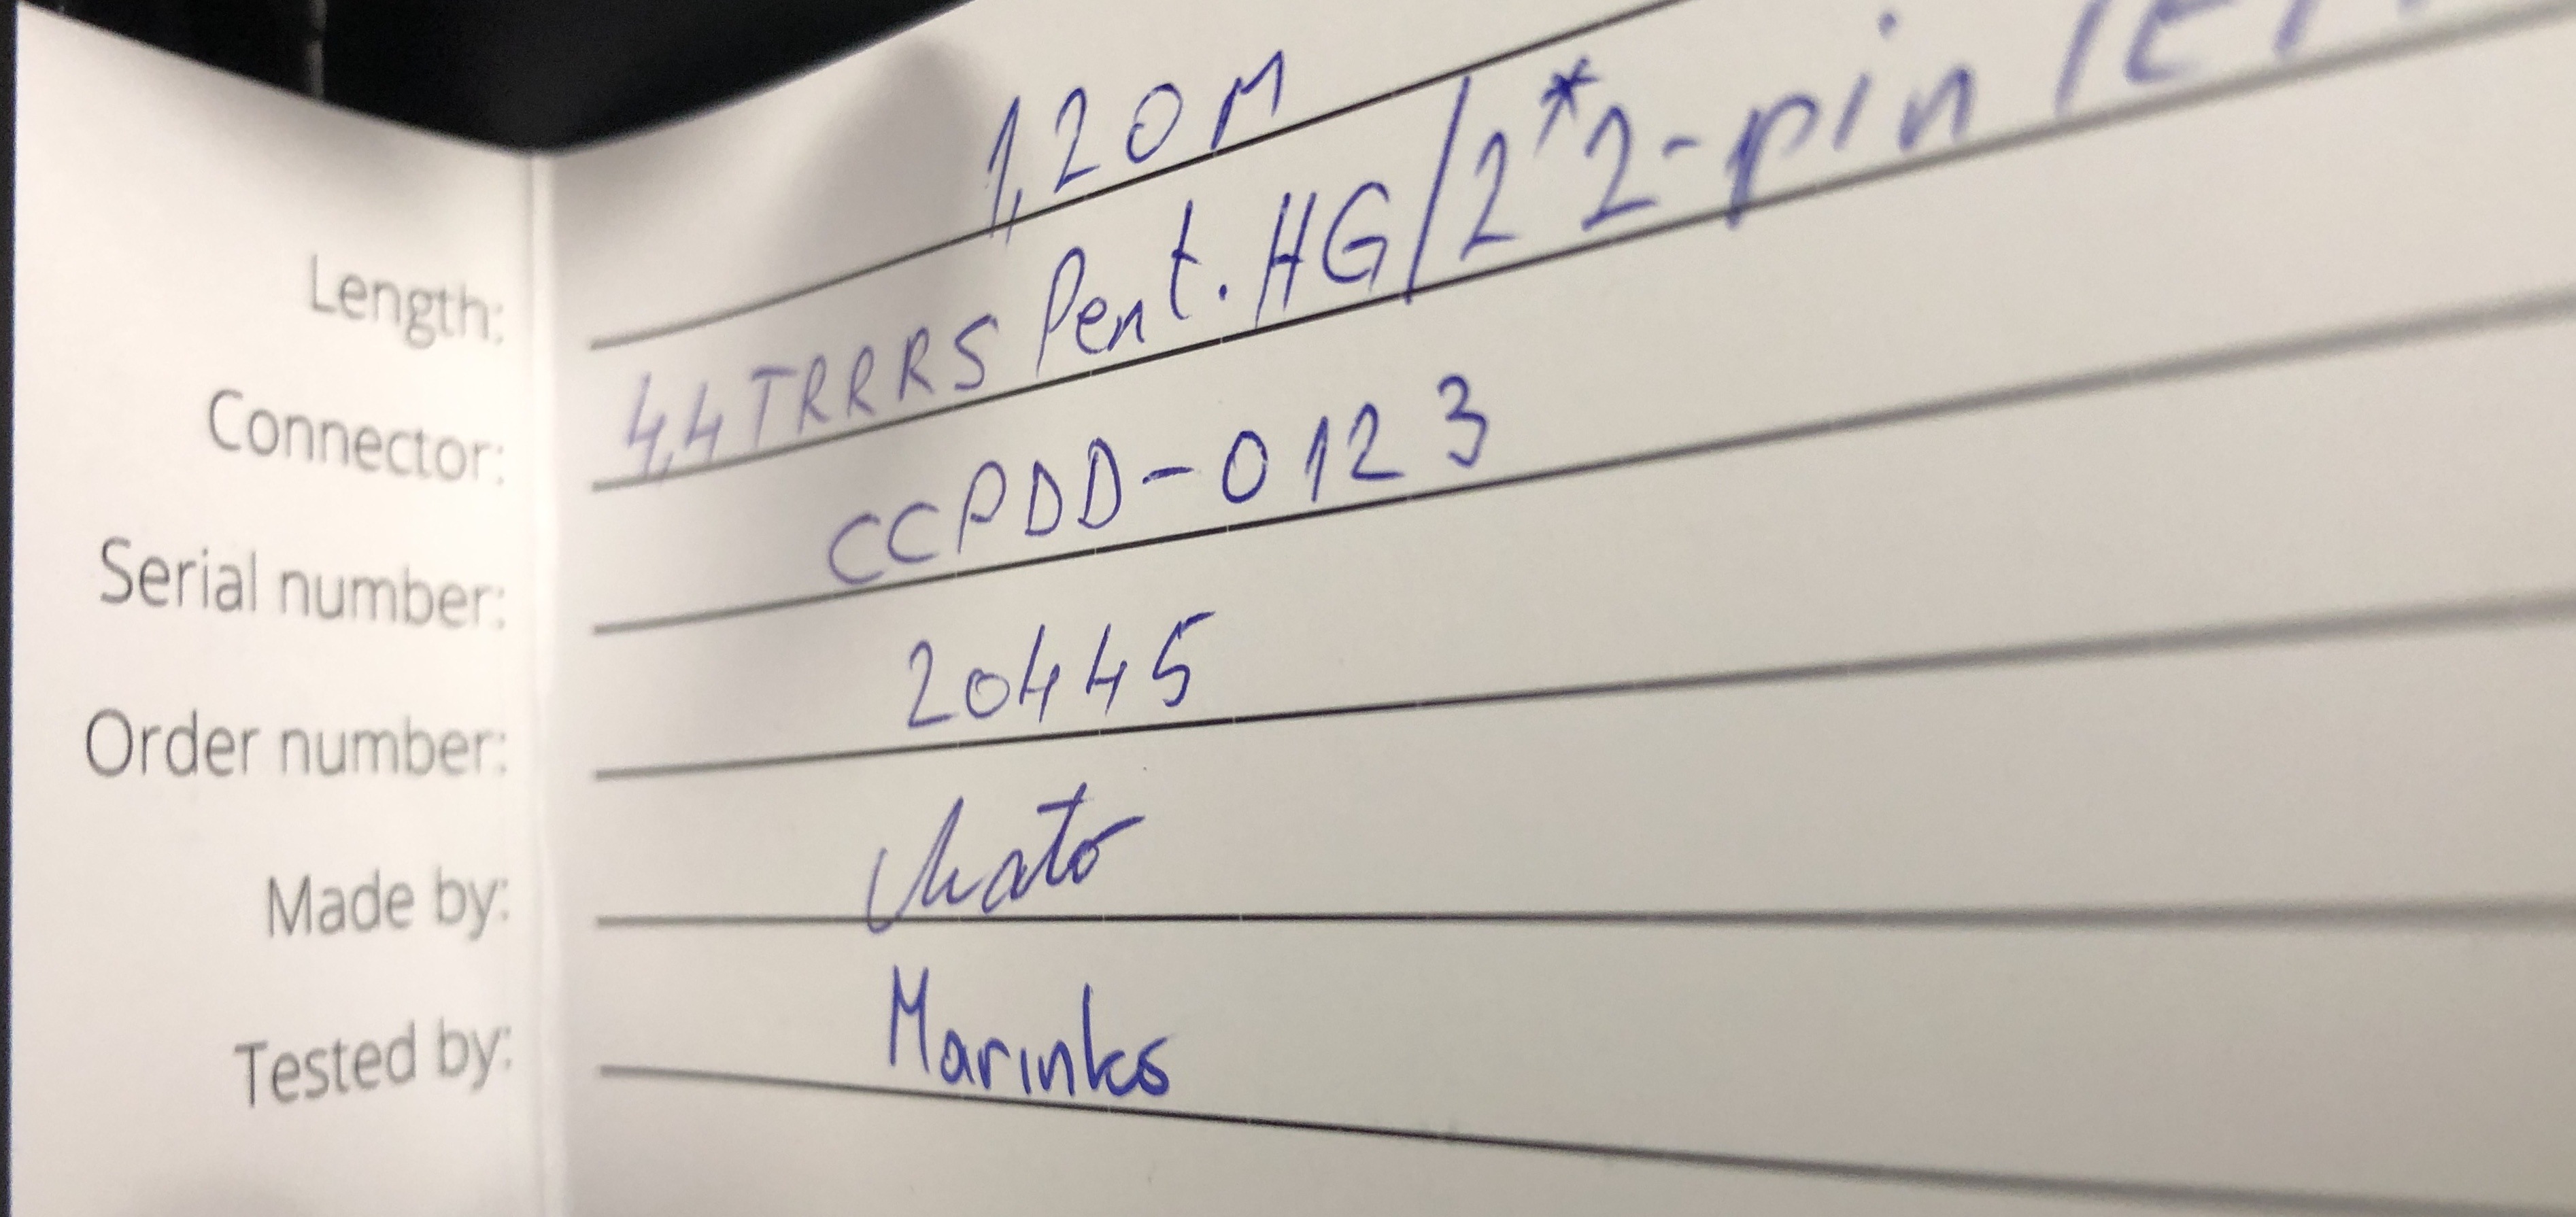 Length: 1,20 M
Connector: 4,4 TRRRS Pent. HG/2*2-pin
Serial number: CCPDD-0123
Order number: 20445
Made by: Mato
Tested by: Marinks